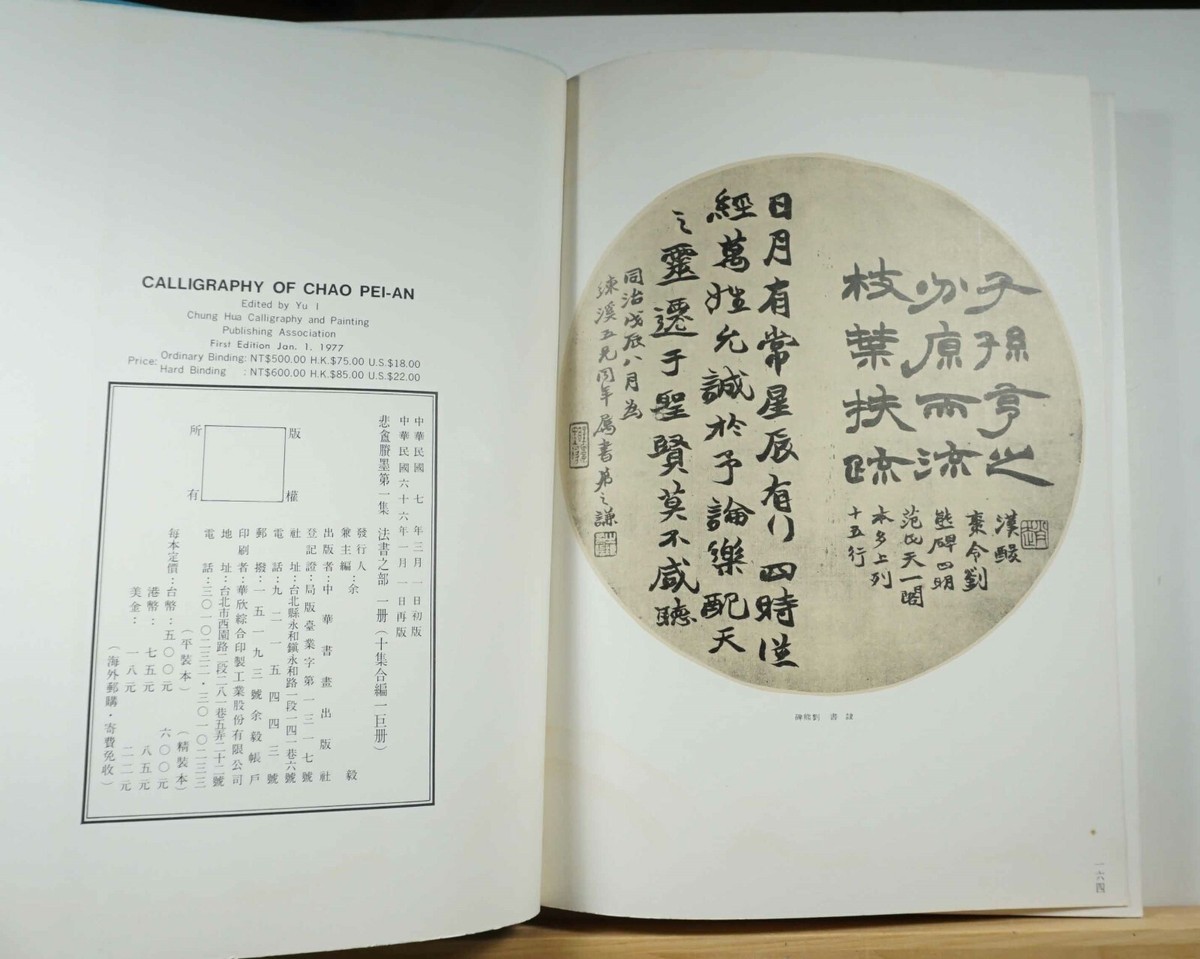 CALLIGRAPHY OF CHAO PEI-AN
Edited by Yu I
Chung Hua Calligraphy and Painting
Publishing Association
First Edition Jan. 1. 1977
Price: Ordinary Binding: NT$500.00 H.K.$75.00 U.S.$18.00
Hard Binding : NT$600.00 H.K.$85.00 U.S.$22.00
中華民國 七 年三月一日初版
中華民國六十六年一月一日再版
悲盦賸墨第一集 法書之部 一册(十集合編一巨册)
版權
所有
發行人
兼主編:余毅
出版者:中華書畫出版社
登記證:局版臺業字第一三一七號
社址:台北縣永和鎮永和路一段一四一巷六號
電話:九二一五四四三號
郵撥:一五一九三號余毅帳戶
印刷者:華欣綜合印製工業股份有限公司
地址:台北市西園路二段二八一巷五弄二十二號
電話:三〇一〇二三二・三〇一〇二三三
(平裝本) (精裝本)
每本定價:台幣:五〇〇元 六〇〇元
港幣:七五元 八五元
美金:一八元 二二元
(海外郵購・寄費免收)
子孫亨之
分原而流
枝葉扶疏
漢酸
棗令劉
熊碑四明
范氏天一閣
本多上列
十五行
日月有常星辰有行四時從
經萬姓允誠於予論樂配天
之靈遷于聖賢莫不咸聽
同治戊辰八月為
溪五兄同年屬書弟之謙
隸書 劉熊碑
一六四